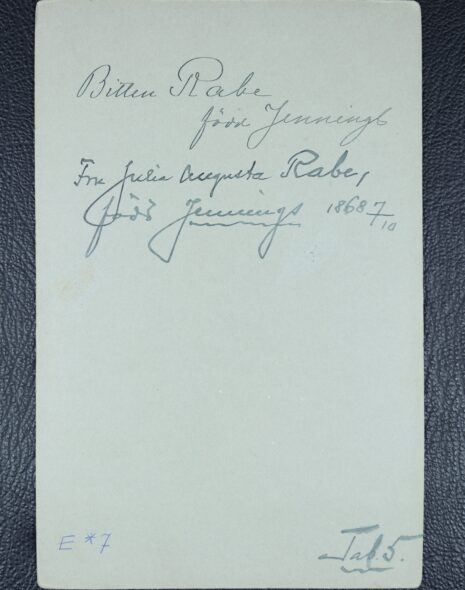 Bitten Rabe
född Jennings
Fru Julia Augusta Rabe,
född Jennings 1868 7/10
E *7
Tab. 5.